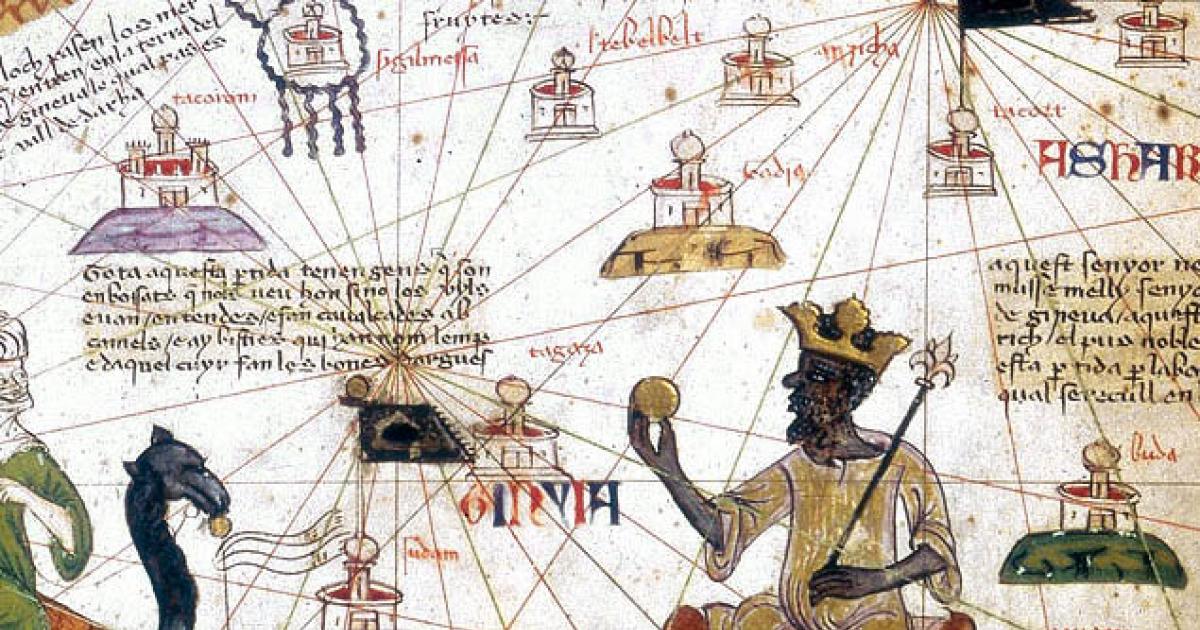 loch pasen los mer
entren en la terra del
gineua lo qual pas es
vall de darha
fruytes:-
sigilmessa
tacoroni
tebelbelt
anzicha
tacort
ASHAR
badia
Tota aquesta ptida tenen gens q son
enbossats q nols veu hom sino los uyls
e uan en tendes e fan caualcades ab
camels / e ay bisties qui han nom lemp
e daquel cuyr fan les bones dargues
aquest senyor ne
musse melly senyo
de gineua / aquest
rich / el pus noble
esta ptida p labo
qual se recull en
tagaza
GINYIA
buda
sudam